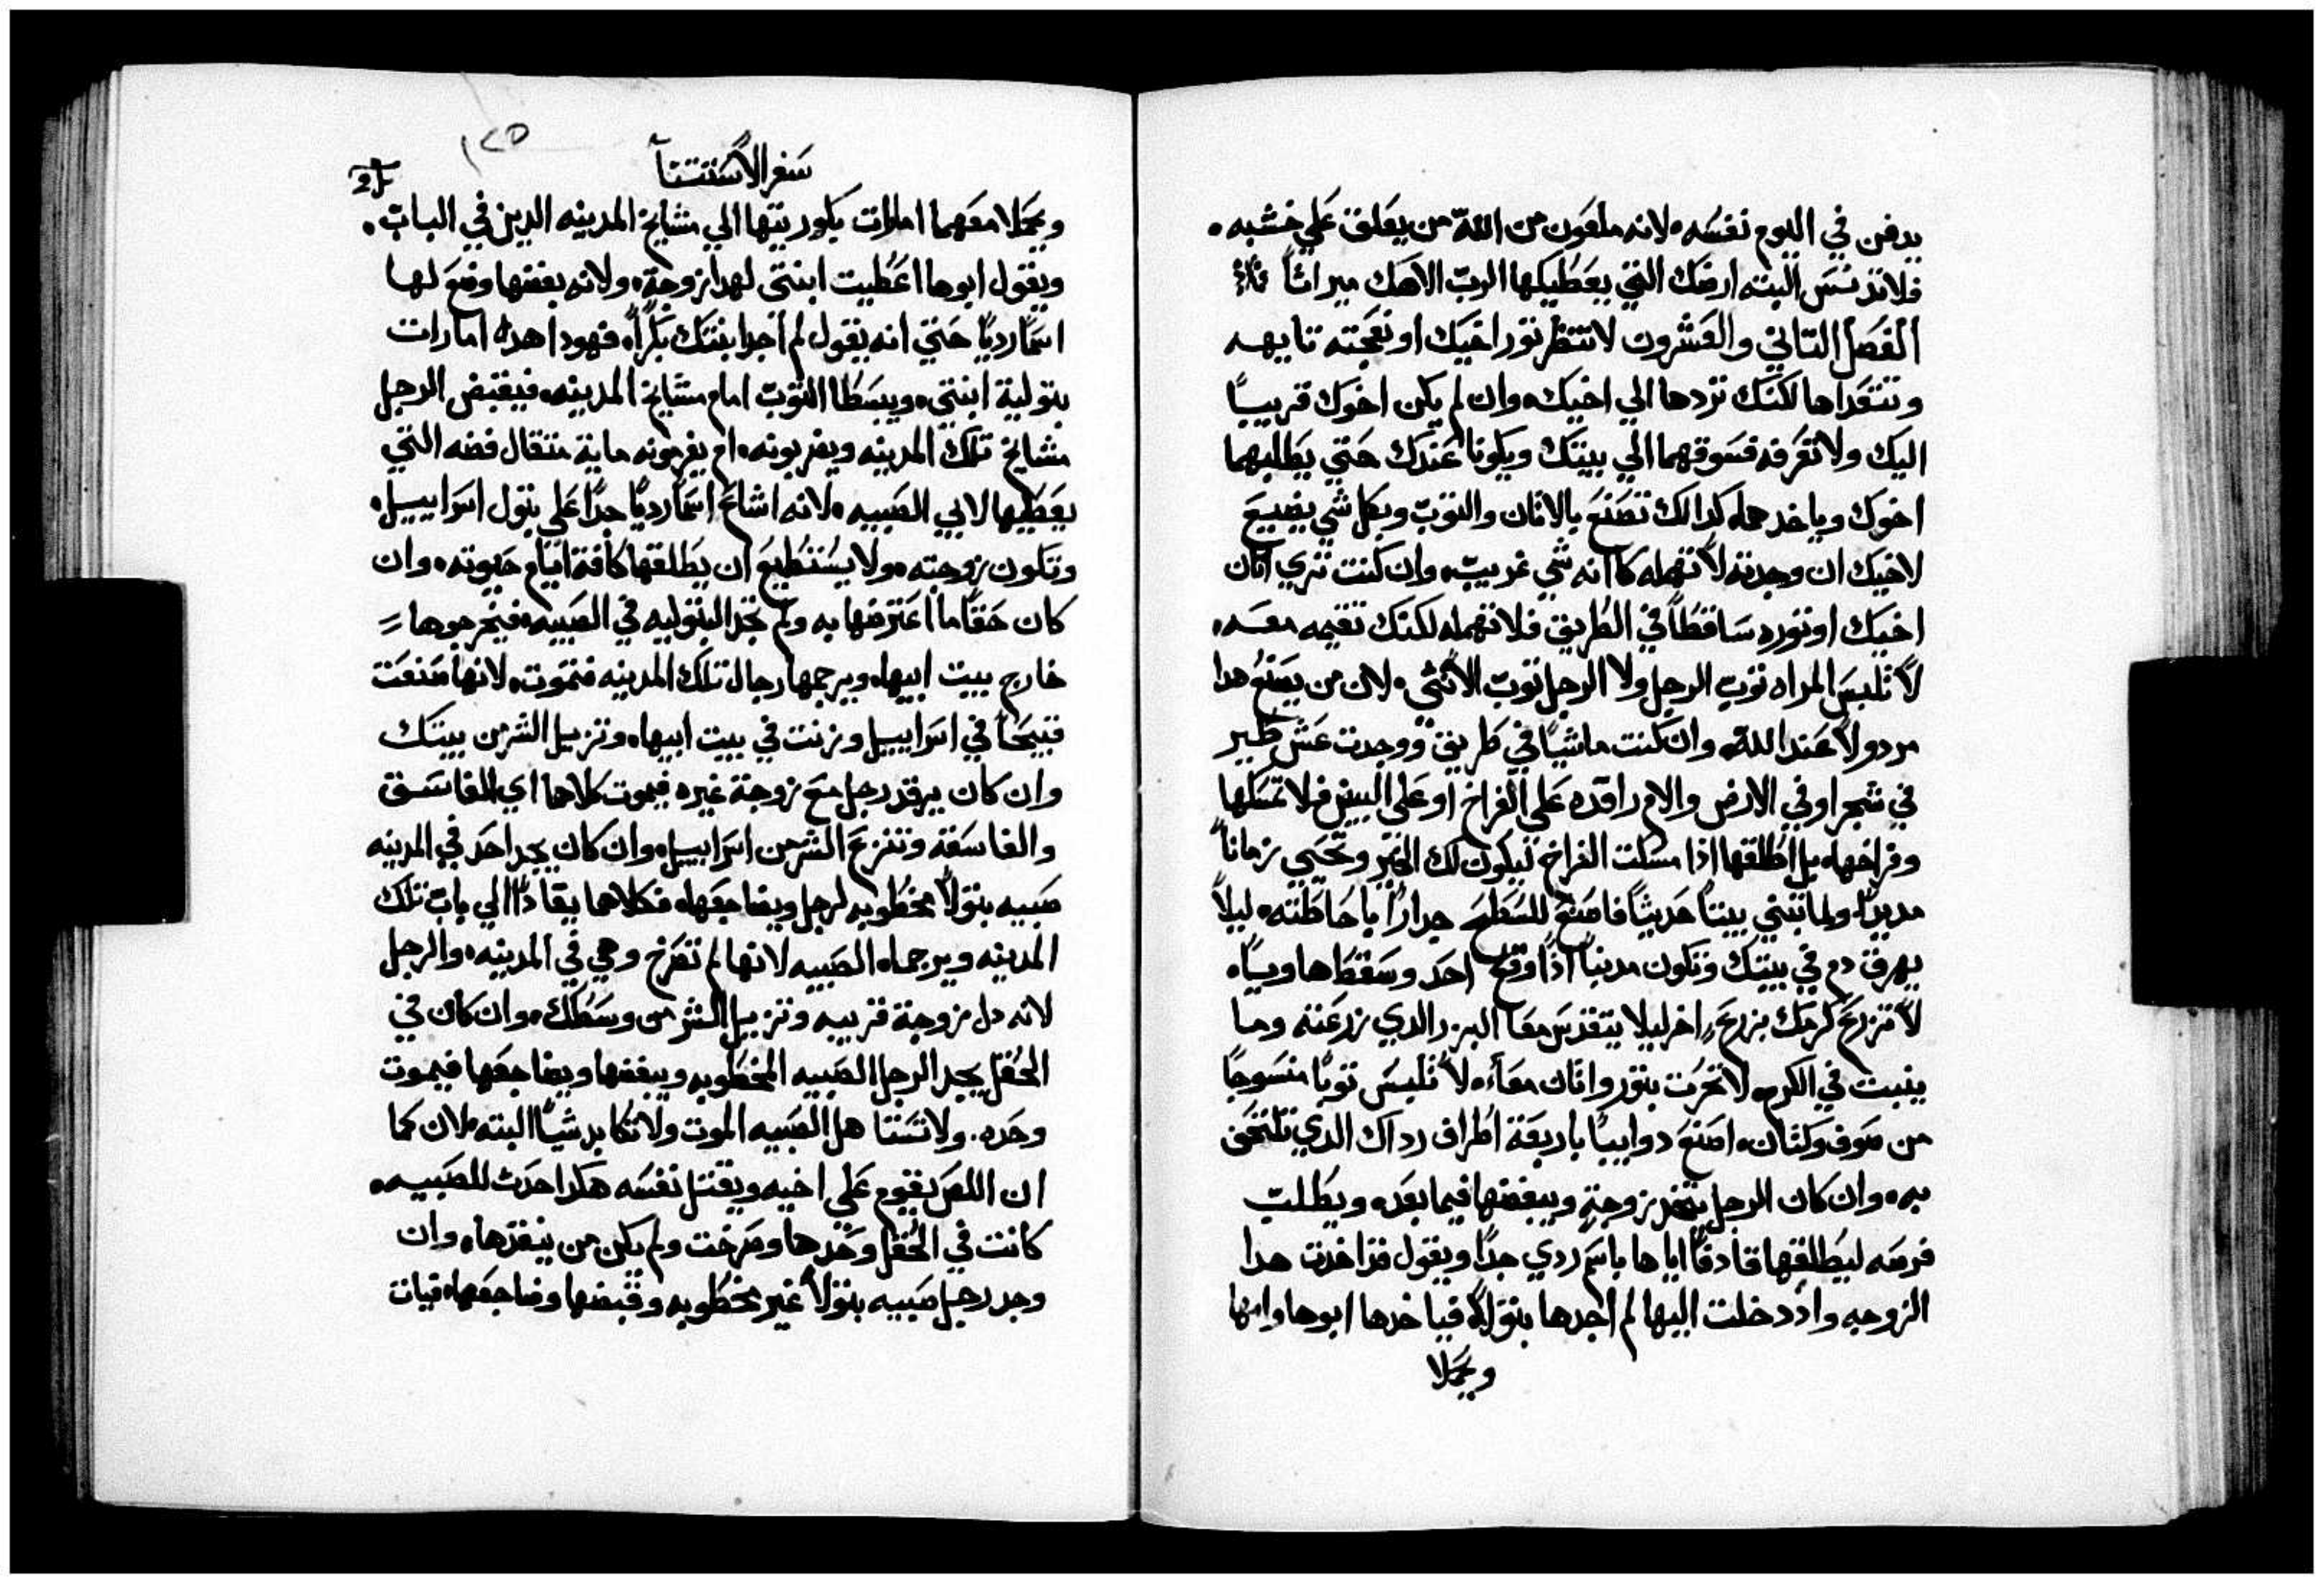 يدفن في اليوم نفسه ولانه ملعون من الله من يعلق علي خشبه
فلا تدنس البته ارضك التي يعطيكها الرب الاهك ميراثاً
الفصل التاني والعشرون لا تنظر تور اخيك او نعجته تايهه
وتتعداها لكنك تردها الي اخيك وان لم يكن اخوك قريباً
اليك ولا تعرفه فسوقهما الي بيتك ويكونا عندك حتي يطلبهما
اخوك وياخدهما كدالك تصنع بالاتان والتوب وبكل شي يضيع
لاخيك ان وجدته لا تهمله كانه شي غريب وان كنت تري اتان
اخيك او توره ساقطاً في الطريق فلا تهمله لكنك تقيمه معه
لا تلبس المراه توب الرجل ولا الرجل توب الانثي لان من يصنع هدا
مردولاً عند الله وان كنت ماشياً في طريق ووجدت عش طير
في شجر او في الارض والام راقده علي الفراخ او علي البيض فلا تمسكها
وفراخها بل اطلقها ادا مسكت الفراخ ليكون لك الخير وتحيي زماناً
مديداً ولما تبني بيتاً حديثاً فاصنع للسطح جداراً باحاطته ليلاً
يهرق دم في بيتك وتكون مدنباً اذا وقع احد وسقط هاوياً
لا تزرع كرمك بزرع اخر ليلا يتقدس معاً البزر الدي زرعته وما
ينبت في الكرم لا تحرت بتور واتان معاً لا تلبس توباً منسوجاً
من صوف وكتان اصنع دوايباً باربعة اطراف رداك الدي تلتحف
به وان كان الرجل يتخد زوجة ويبغضها فيما بعده ويطلب
فرصه ليطلقها قادفاً اياها باسم ردي جداً ويقول قد اخدت هدا
الزوجه واد دخلت اليها لم اجدها بتولاً فياخدها ابوها وامها
ويحملا
سفر الاستتنا
١٢٥
ويحملا معهما امارات بكوريتها الي مشايخ المدينه الدين في الباب
ويقول ابوها اعطيت ابنتي لهدا زوجة ولانه يبغضها وضع لها
اسماً ردياً حتي انه يقول لم اجد ابنتك بكراً فهودا هده امارات
بتولية ابنتي ويبسطا التوب امام مشايخ المدينه فيقبض الرجل
مشايخ تلك المدينه ويضربونه ام يغرمونه ماية متقال فضه التي
يعطيها لابي الصبيه لانه اشاع اسماً ردياً جداً علي بتول اسراييل
وتكون زوجته ولا يستطيع ان يطلقها كافة ايام حيوته وان
كان حقاً ما اعترضها به ولم تجد البتوليه في الصبيه فيخرجوها
خارج بيت ابيها ويرجمها رجال تلك المدينه فتموت لانها صنعت
قبيحاً في اسراييل وزنت في بيت ابيها وتزيل الشر من بيتك
وان كان يرقد رجل مع زوجة غيره فيموت كلاهما اي الفاسق
والفاسقة وتنزع الشر من اسراييل وان كان يجد احد في المدينه
صبيه بتولاً مخطوبه لرجل ويضاجعها فكلاهما يقادا الي باب تلك
المدينه ويرجماه الصبيه لانها لم تصرخ وهي في المدينه والرجل
لانه دل زوجة قريبه وتزيل الشر من وسطك وان كان في
الحقل يجد الرجل الصبيه المخطوبه ويبغضها ويضاجعها فيموت
وحده ولا تستا هل الصبيه الموت ولا تكابد شياً البته لان كما
ان اللص يقوم علي اخيه ويقتل نفسه هكدا حدت للصبيه
كانت في الحقل وحدها وصرخت ولم يكن من ينقدها وان
وجد رجل صبيه بتولاً غير مخطوبه وقبضها وضاجعها فياتي